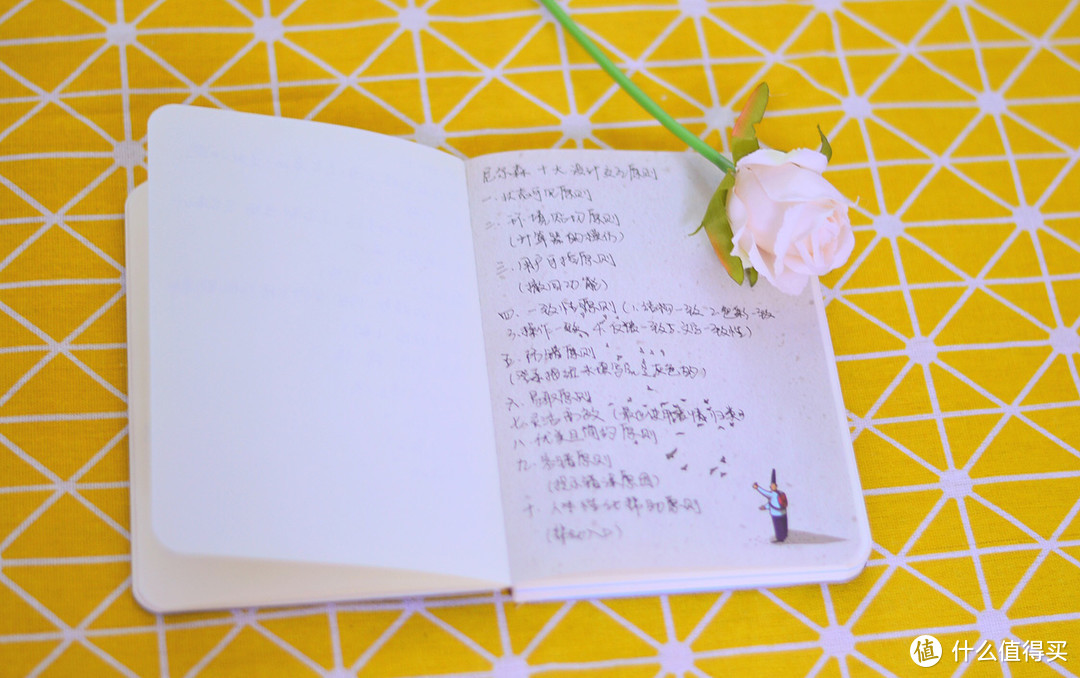 尼尔森十大设计交互原则
一.状态可见原则
二.环境贴切原则
(计算器的操作)
三.用户可控原则
(撤回功能)
四.一致性原则(1.结构一致 2.色彩一致
3.操作一致 4.反馈一致 5.文字一致性)
五.防错原则
(登录按钮未填写完是灰色的)
六.易取原则
七.灵活高效(最近使用表情归类)
八.优美且简约原则
九.容错原则
(提示错误原因)
十.人性化帮助原则
(帮助入口)
值 什么值得买